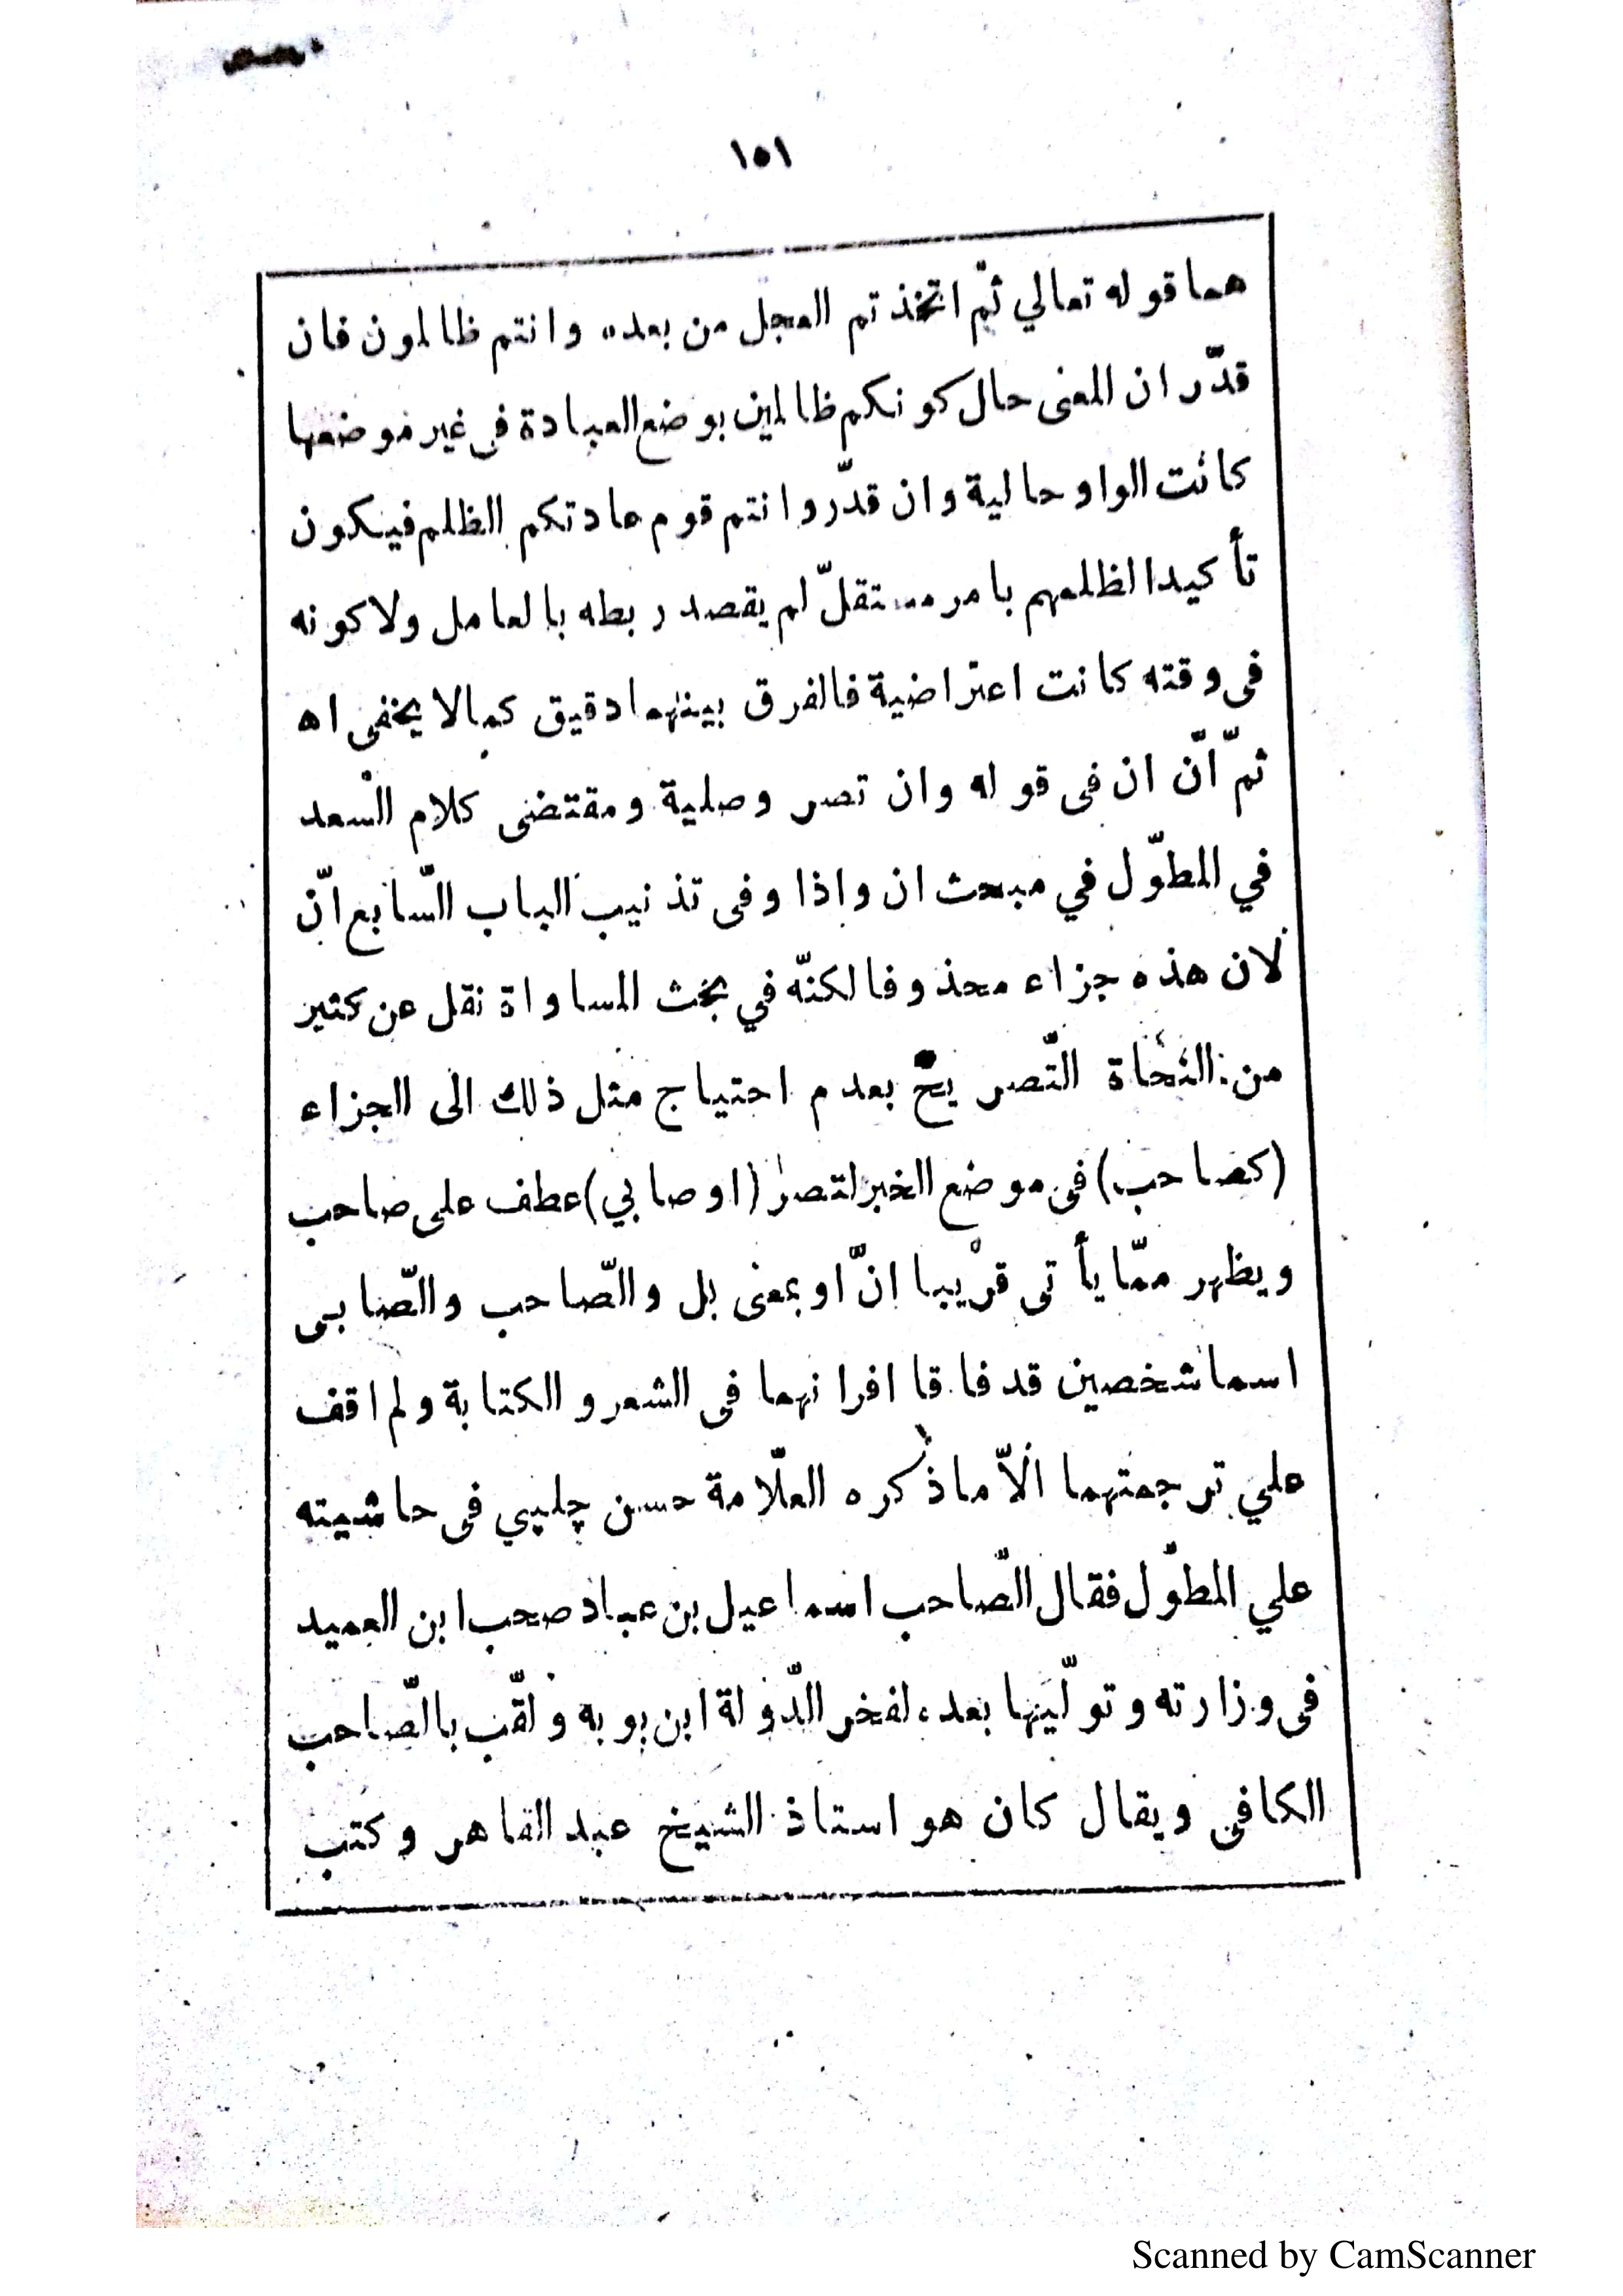 ١٥١
هما قوله تعالي ثمّ اتخذتم العجل من بعده وانتم ظالمون فان
قدّر ان المعنى حال كونكم ظالمين بوضع العبادة فى غير موضعها
كانت الواو حالية وان قدّر وانتم قوم عادتكم الظلم فيكون
تأكيدا لظلمهم بامر مستقلّ لم يقصد ربطه بالعامل ولا كونه
فى وقته كانت اعتراضية فالفرق بينهما دقيق كما لا يخفى اه
ثمّ انّ ان فى قوله وان تصر وصلية ومقتضى كلام السعد
في المطوّل في مبحث ان واذا وفى تذنيب الباب السّابع انّ
لان هذه جزاء محذوفا لكنّه في بحث المساواة نقل عن كثير
من النحاة التّصريح بعدم احتياج مثل ذلك الى الجزاء
(كصاحب) فى موضع الخبر لتصر (او صابي) عطف على صاحب
ويظهر ممّا يأتى قريبا انّ او بمعنى بل والصّاحب والصّابى
اسما شخصين قد فاقا اقرانهما فى الشعر والكتابة ولم اقف
علي ترجمتهما الاّ ما ذكره العلّامة حسن چلپي فى حاشيته
علي المطوّل فقال الصّاحب اسماعيل بن عباد صحب ابن العميد
فى وزارته وتولّيها بعده لفخر الدّولة ابن بويه ولقّب بالصّاحب
الكافي ويقال كان هو استاذ الشيخ عبد القاهر وكتب
Scanned by CamScanner